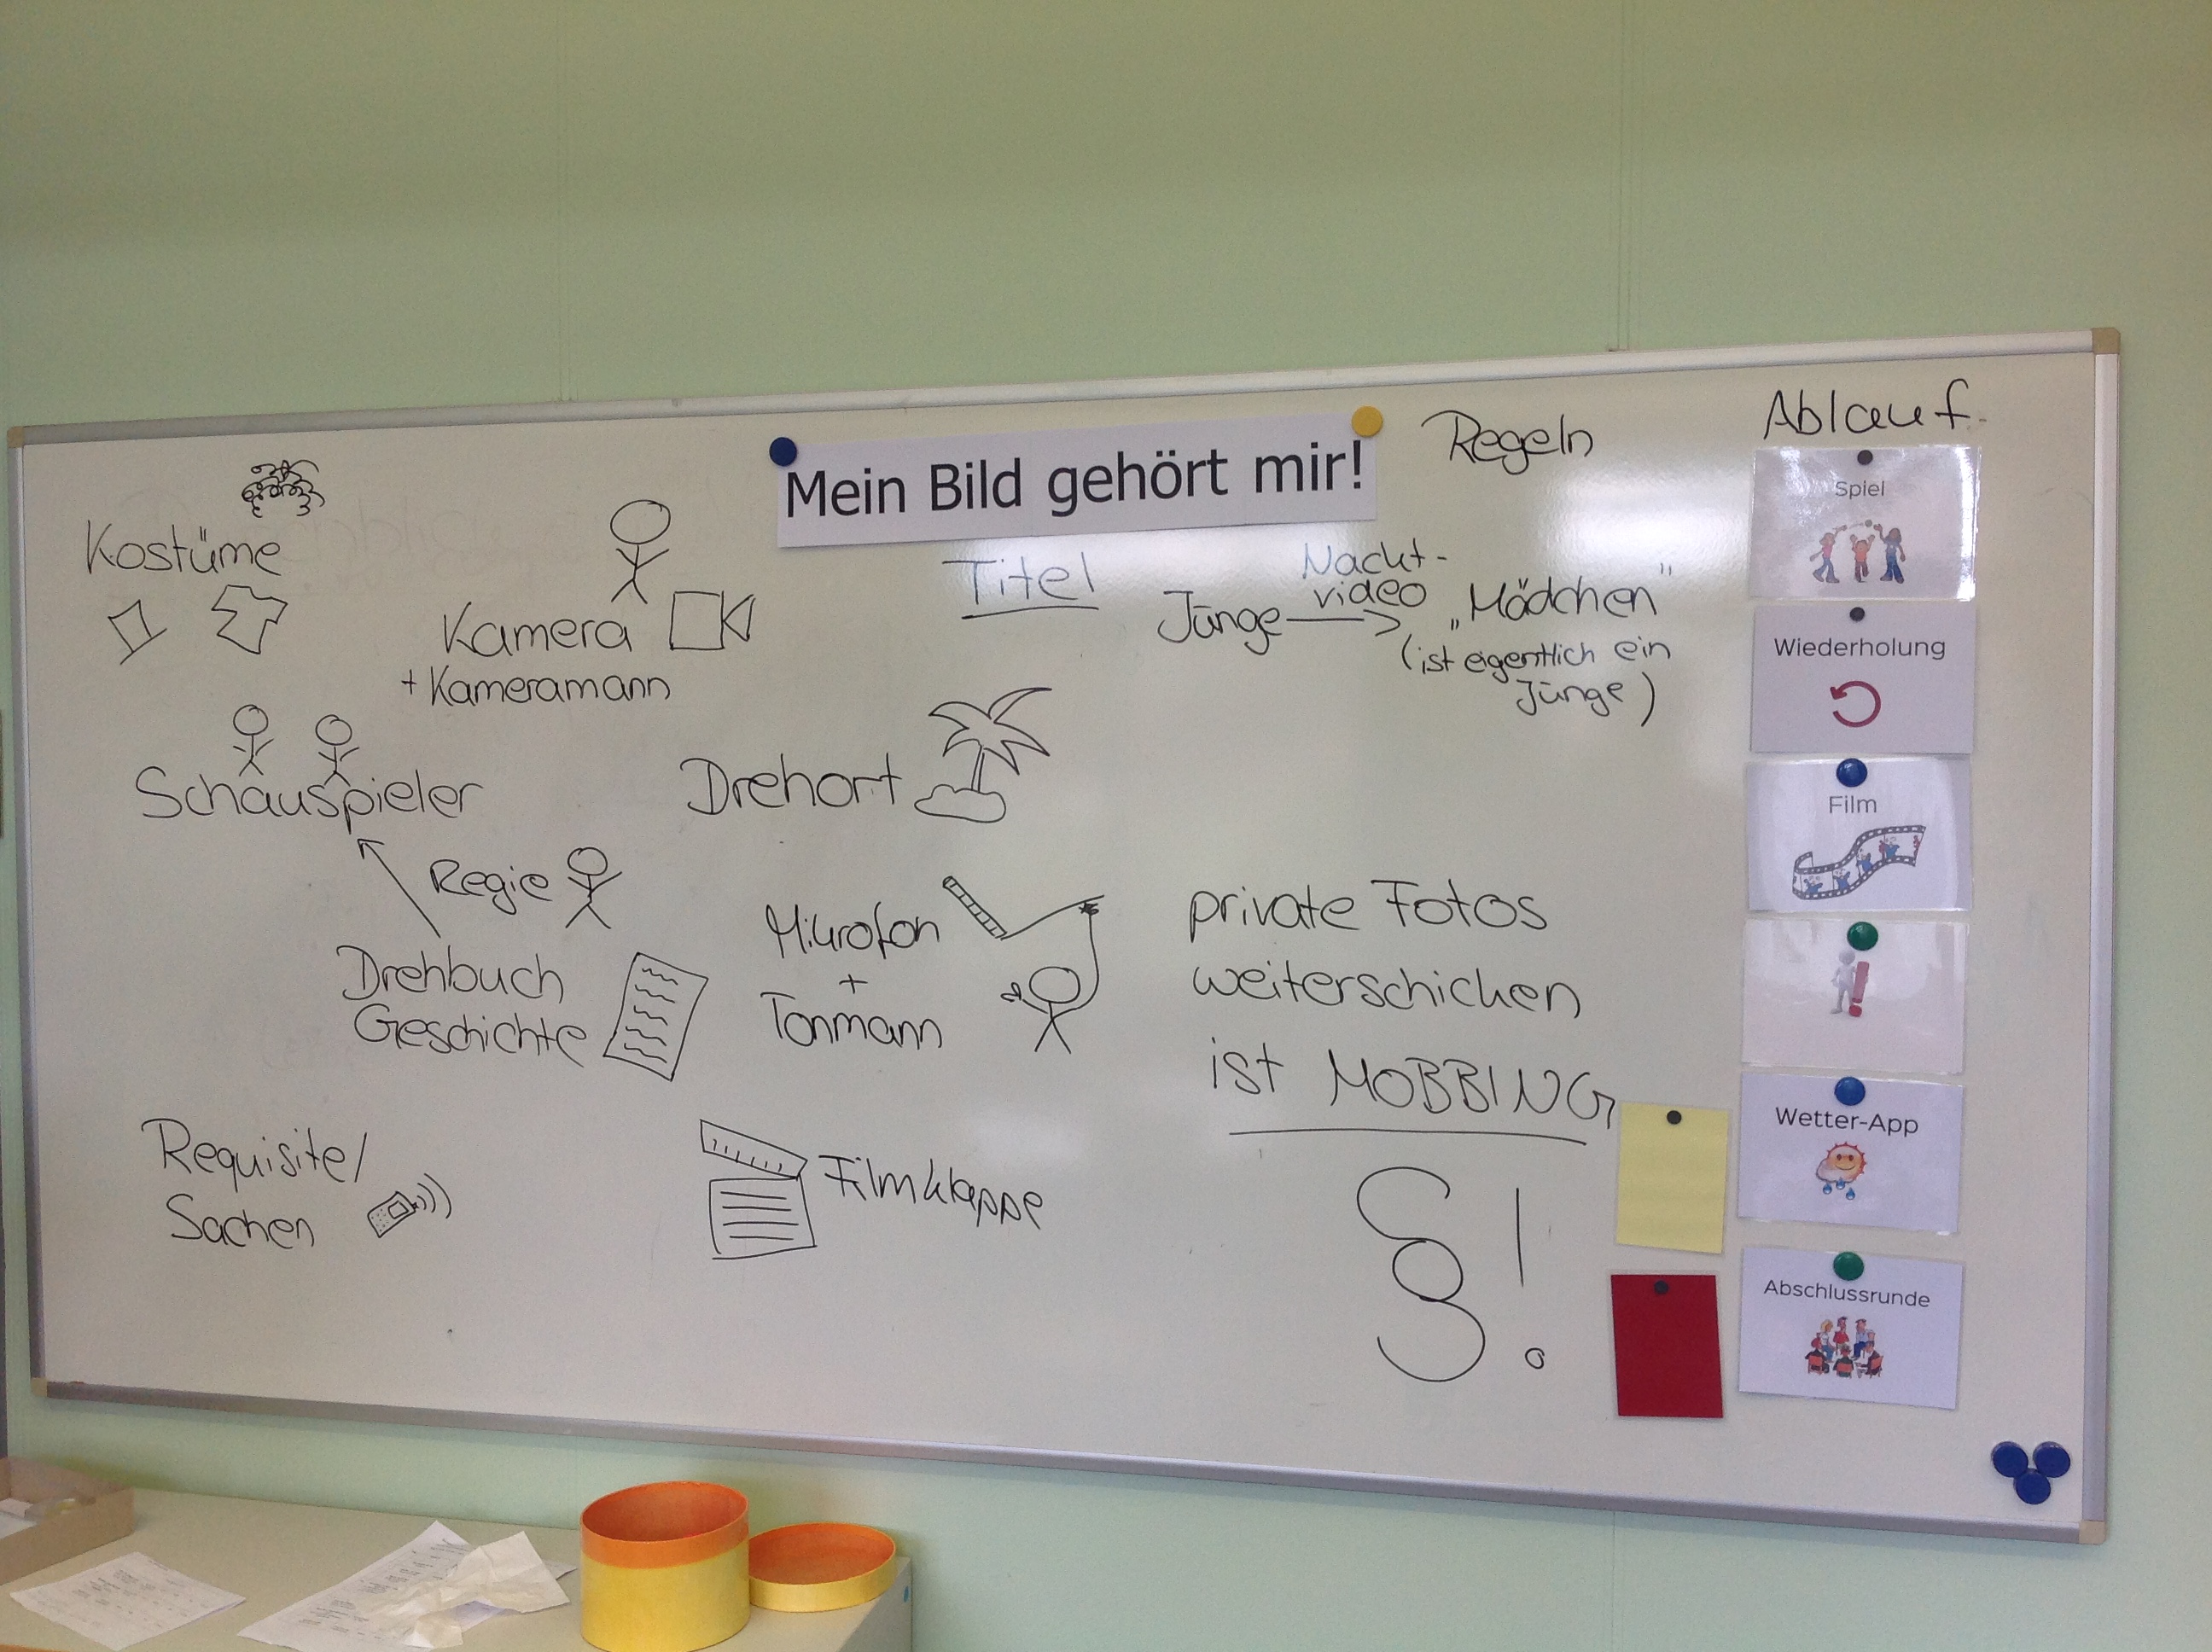 Mein Bild gehört mir!
Kostüme
Kamera
+ Kameramann
Schauspieler
Regie
Drehbuch
Geschichte
Requisite/
Sachen
Titel
Drehort
Mikrofon
+
Tonmann
Filmklappe
Regeln
Nackt-
video
Junge → „Mädchen"
(ist eigentlich ein
Junge)
private Fotos
weiterschicken
ist MOBBING
§!
Ablauf
Spiel
Wiederholung
Film
Wetter-App
Abschlussrunde